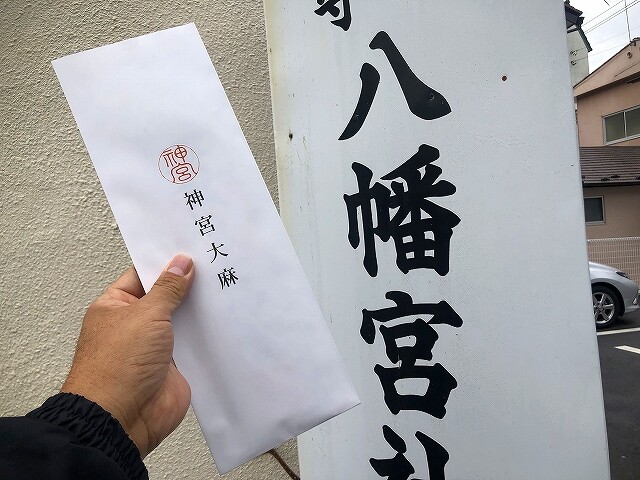 神宮
神宮大麻
八幡宮社